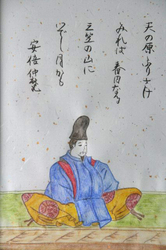 天の原ふりさけ
みれば春日なる
三笠の山に
いでし月かも
安倍仲麿